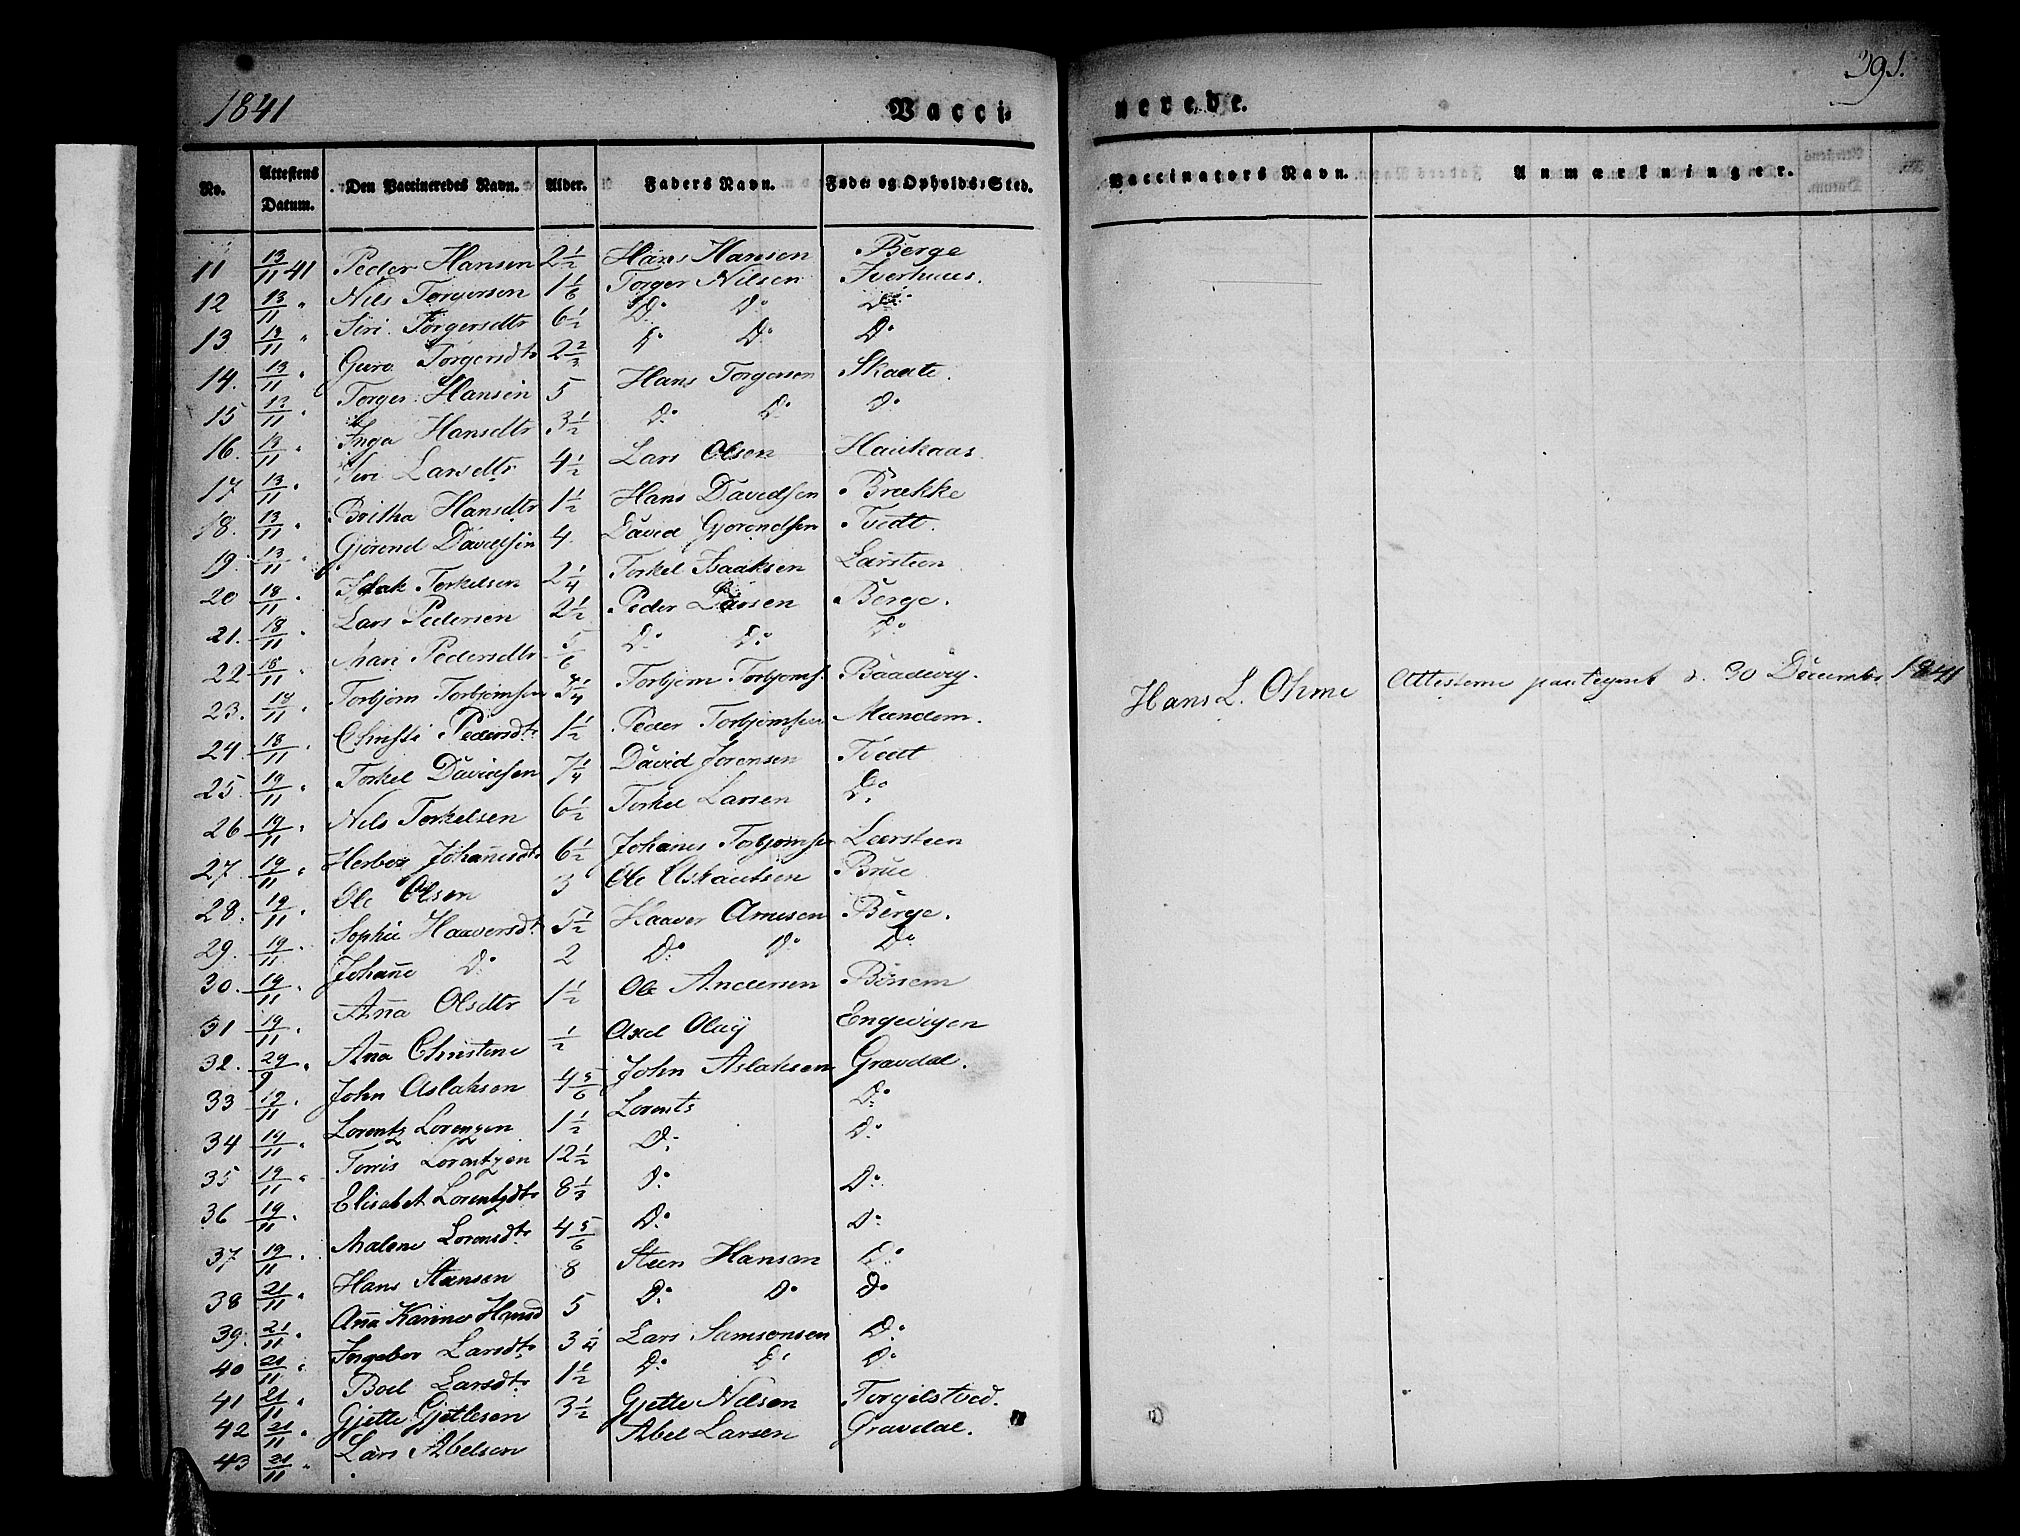 1841
Vacci
nerede.
391.
No. Attestens Datum. Den Vaccineredes Navn. Alder. Faders Navn. Føde- og Opholds-Sted. Vaccinateurs Navn. Anmærkninger.
11 13/11 41 Peder Hansen 2 1/2 Hans Hansen Berge
12 13/11 " Nils Torgersen 1 1/6 Torger Nilsen Iverhuus.
13 13/11 " Siri Torgersdtr 6 1/2 Do Do Do
14. 13/11 " Guro Torgersdtr 2 2/3 Do Do Do
15 13/11 " Torger Hansen 5 Hans Torgersen Skaate.
16. 13/11 " Inga Hansdtr 3 1/2 Do Do Do
17 13/11 " Siri Larsdtr 4 1/2 Lars Olsen Haukaas.
18. 13/11 " Britha Hansdtr 1 1/2 Hans Davidsen Brække
19. 13/11 " Gjørend Davidsen 4. David Gjørendsen Tvedt.
20 18/11 " Isak Torkelsen 2 1/4 Torkel Isaaksen Larsteen
21. 18/11 " Lars Pedersen 2 1/2 Peder Larsen Berge.
22 18/11 " Mari Pedersdtr 5/6 Do Do Do
23. 18/11 " Torbjørn Torbjørnsen 3 1/4 Torbjørn Torbjørns. Baadsvig.
24 18/11 " Christi Pedersdtr 1 1/2 Peder Torbjørnsen
25. 19/11 " Torkel Davidsen 7 1/4 David Jørensen Tvedt
26 19/11 " Nils Torkelsen 6 1/2 Torkel Larsen Do
27. 19/11 " Herbor Johañesdtr 6 1/2 Johanes Torbjørnsen Larsteen
28. 19/11 " Ole Olsen 3 Ole Brue
29. 19/11 " Sophie Haaversdtr 5 1/2 Haaver Arnesen Berge.
30. 19/11 " Johañe Do 2 Do Do Do
31 19/11 " Aña Olsdtr 1 1/2 Ole Andersen
32. 29/9 " Aña Christene 1/2 Axel Olay Engevigen
33 19/11 " John Aslaksen 4 5/6 John Aslaksen Gravdal.
34 19/11 " Lorentz Lorenzen 1 1/2 Lorents Do
35 19/11 " Torris Lorentzen 12 1/2 Do Do
36 19/11 " Elisabet Lorentzdtr 8 1/3 Do Do
37 19/11 " Malene Lorensdtr 4 5/6 Do Do
38 21/11 " Hans Steensen 8 Steen Hansen Do
39. 21/11 " Aña Karine Hansd 5 Do Do Do
40 21/11 " Ingebor Larsdtr 3 1/4 Lars Samsonsen Do
41 21/11 " Boel Larsdtr 1 1/2 Do Do Do
42 21/11 " Gjetle Gjetlesen 3 1/2 Gjetle Nilsen Torgilstved.
43 21/11 " Lars Abelsen Abel Larsen Gravdal.
Hans L. Ohme Attesterne paategnet d. 30 Decembr 1841